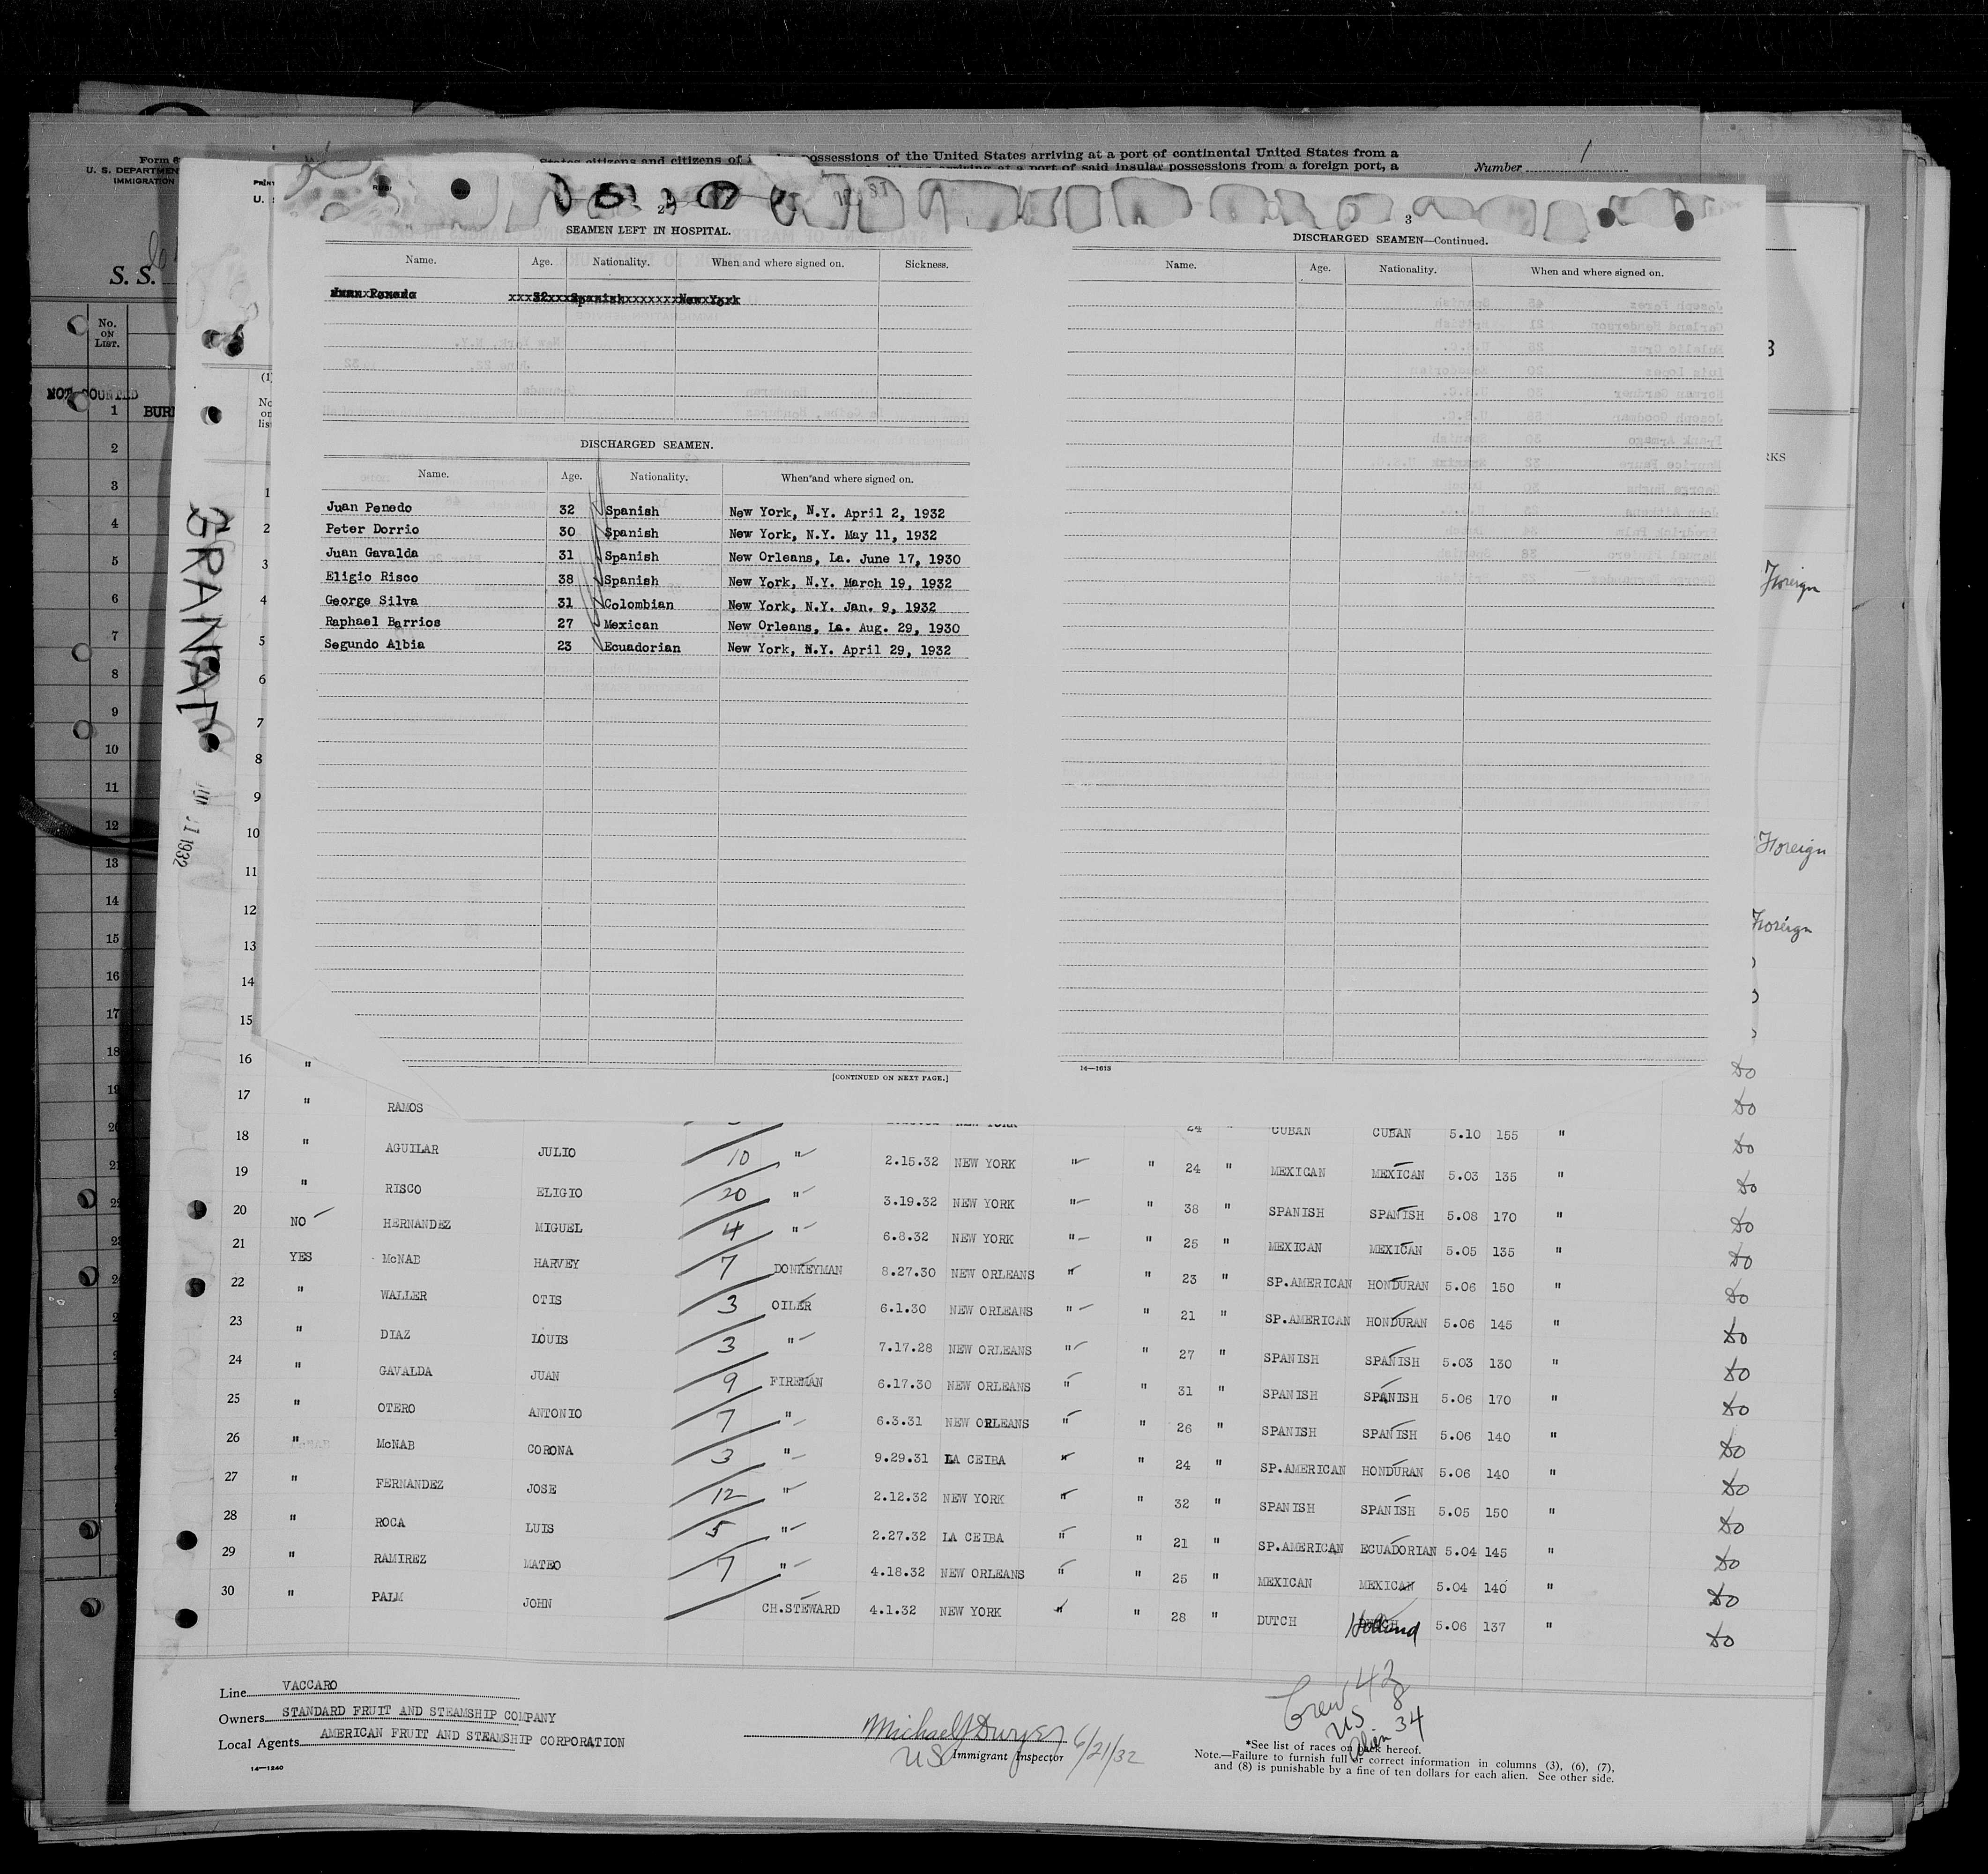 Form
U. S. DEPARTMENT
IMMIGRATION
possessions of the United States arriving at a port of continental United States from a
at a port of said insular possessions from a foreign port, a
Number 1
S. S.
No. ON LIST.
NOT COUNTED
1 BURK
2
3
4
5
6
7
8
9
10
11
12
13
14
15
16
17
18
GRANADA
1932
2
SEAMEN LEFT IN HOSPITAL.
Name. Age. Nationality. When and where signed on. Sickness.
Juan Penedo 32 Spanish New York
DISCHARGED SEAMEN.
Name. Age. Nationality. When and where signed on.
Juan Penedo 32 Spanish New York, N.Y. April 2, 1932
Peter Dorrio 30 Spanish New York, N.Y. May 11, 1932
Juan Gavalda 31 Spanish New Orleans, La. June 17, 1930
Eligio Risco 38 Spanish New York, N.Y. March 19, 1932
George Silva 31 Colombian New York, N.Y. Jan. 9, 1932
Raphael Barrios 27 Mexican New Orleans, La. Aug. 29, 1930
Segundo Albia 23 Ecuadorian New York, N.Y. April 29, 1932
[CONTINUED ON NEXT PAGE.]
3
DISCHARGED SEAMEN—Continued.
Name. Age. Nationality. When and where signed on.
14—1613
Foreign
Foreign
Foreign
1
2
3
4
5
6
7
8
9
10
11
12
13
14
15
16 " Do
17 " RAMOS 24 " CUBAN CUBAN 5.10 155 " Do
18 " AGUILAR JULIO 10 " 2.15.32 NEW YORK " " 24 " MEXICAN MEXICAN 5.03 135 " Do
19 " RISCO ELIGIO 20 " 3.19.32 NEW YORK " " 38 " SPANISH SPANISH 5.08 170 " Do
20 NO HERNANDEZ MIGUEL 4 " 6.8.32 NEW YORK " " 25 " MEXICAN MEXICAN 5.05 135 " Do
21 YES McNAB HARVEY 7 DONKEYMAN 8.27.30 NEW ORLEANS " " 23 " SP.AMERICAN HONDURAN 5.06 150 " Do
22 " WALLER OTIS 3 OILER 6.1.30 NEW ORLEANS " " 21 " SP.AMERICAN HONDURAN 5.06 145 " Do
23 " DIAZ LOUIS 3 " 7.17.28 NEW ORLEANS " " 27 " SPANISH SPANISH 5.03 130 " Do
24 " GAVALDA JUAN 9 FIREMAN 6.17.30 NEW ORLEANS " " 31 " SPANISH SPANISH 5.06 170 " Do
25 " OTERO ANTONIO 7 " 6.3.31 NEW ORLEANS " " 26 " SPANISH SPANISH 5.06 140 " Do
26 " McNAB CORONA 3 " 9.29.31 LA CEIBA " " 24 " SP.AMERICAN HONDURAN 5.06 140 " Do
27 " FERNANDEZ JOSE 12 " 2.12.32 NEW YORK " " 32 " SPANISH SPANISH 5.05 150 " Do
28 " ROCA LUIS 5 " 2.27.32 LA CEIBA " " 21 " SP.AMERICAN ECUADORIAN 5.04 145 " Do
29 " RAMIREZ MATEO 7 " 4.18.32 NEW ORLEANS " " 25 " MEXICAN MEXICAN 5.04 140 " Do
30 " PALM JOHN CH.STEWARD 4.1.32 NEW YORK " " 28 " DUTCH Holland 5.06 137 " Do
Line VACCARO
Owners STANDARD FRUIT AND STEAMSHIP COMPANY
Local Agents AMERICAN FRUIT AND STEAMSHIP CORPORATION
14—1240
Michael J Dwyer 6/21/32
US Immigrant Inspector
Crew 42
US 8
Alien 34
*See list of races on back hereof.
Note.—Failure to furnish full or correct information in columns (3), (6), (7),
and (8) is punishable by a fine of ten dollars for each alien. See other side.